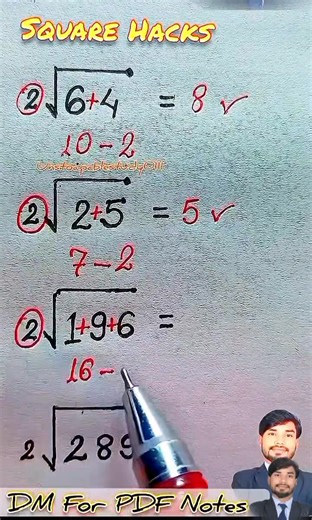 Square Hacks
2√6+4 = 8 ✓
10-2
2√2+5 = 5 ✓
7-2
2√1+9+6 =
16-
2√289
DM For PDF Notes